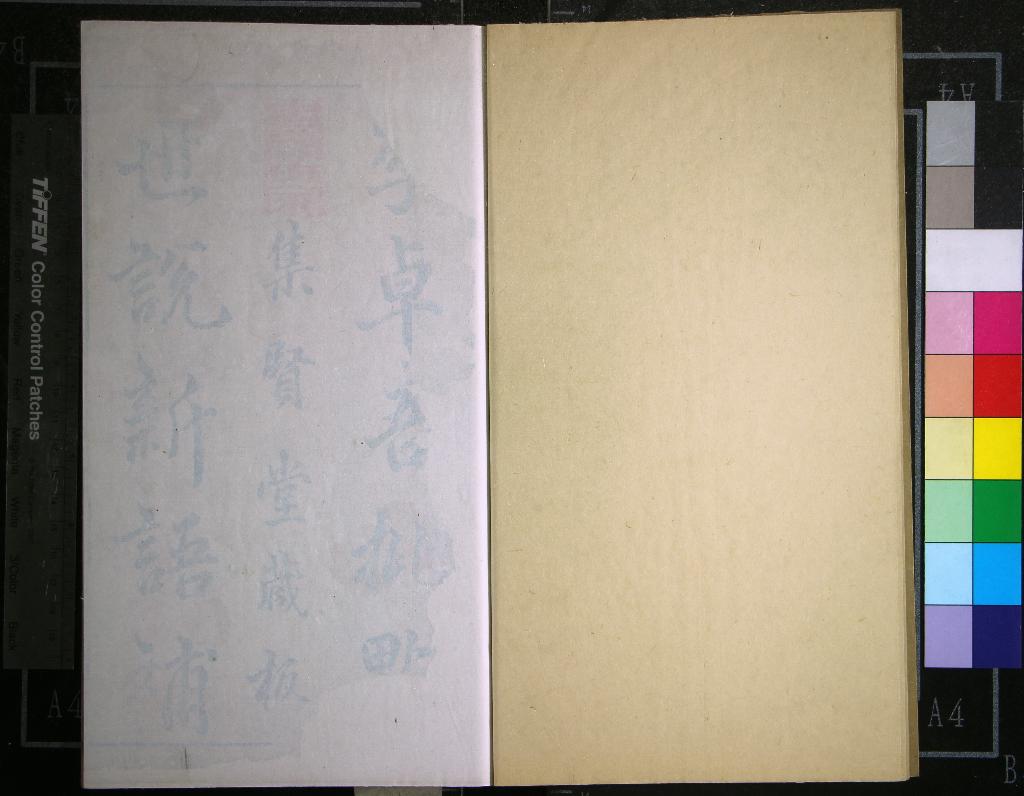 李卓吾批點
集賢堂藏板
世說新語補
TIFFEN Color Control Patches
A4
A4
A4
B